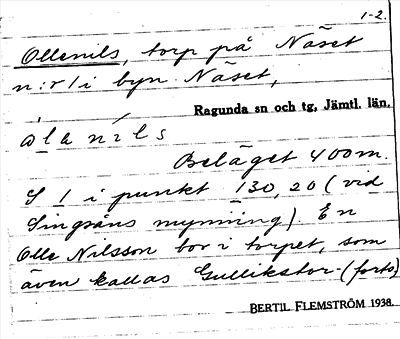 1-2.
Ollenils, torp på Näset
n:r 1 i byn Näset,
Ragunda sn och tg, Jämtl. län.
Beläget 400m.
S 1 i punkt 130,20 (vid
Singsåns mynning). En
Olle Nilsson bor i torpet, som
även kallas Gullikstor- (forts)
BERTIL FLEMSTRÖM 1938.